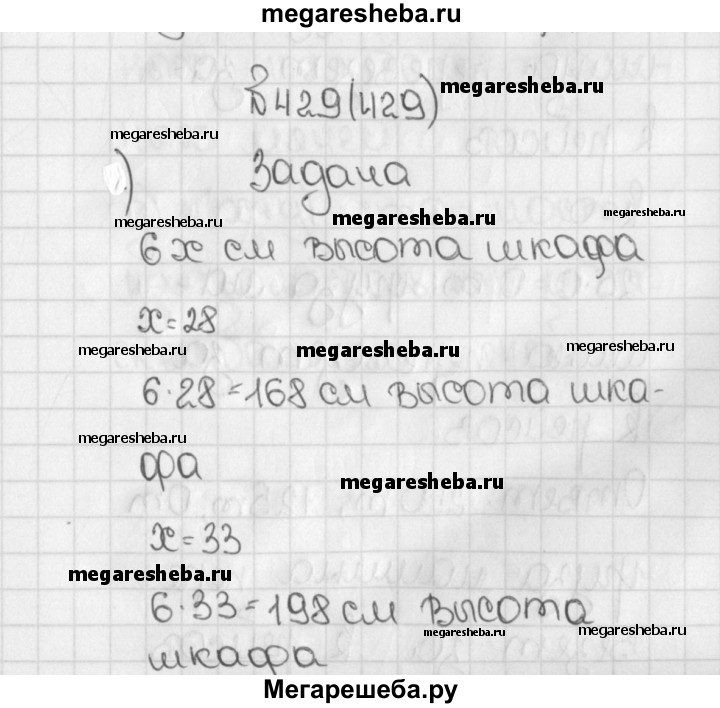 megaresheba.ru
№429(429)
megaresheba.ru
megaresheba.ru
) Задача
megaresheba.ru
megaresheba.ru
megaresheba.ru
6x см высота шкафа
x=28
megaresheba.ru
megaresheba.ru
megaresheba.ru
6·28=168 см высота шка-
megaresheba.ru
фа
megaresheba.ru
x=33
megaresheba.ru
6·33=198 см высота
megaresheba.ru
megaresheba.ru
шкафа
Мегарешеба.ру